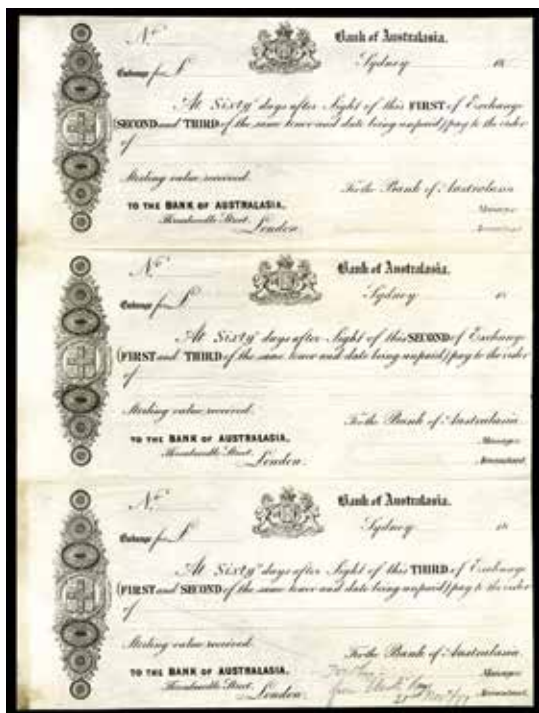 No.
Bank of Australasia.
Sydney 18
Exchange for £
At Sixty days after Sight of this FIRST of Exchange
(SECOND and THIRD of the same tenor and date being unpaid) pay to the order
of
Sterling value received.
For the Bank of Australasia
TO THE BANK OF AUSTRALASIA,
Manager
Threadneedle Street,
London.
Accountant
No.
Bank of Australasia.
Sydney 18
Exchange for £
At Sixty days after Sight of this SECOND of Exchange
(FIRST and THIRD of the same tenor and date being unpaid) pay to the order
of
Sterling value received.
For the Bank of Australasia
TO THE BANK OF AUSTRALASIA,
Manager
Threadneedle Street,
London.
Accountant.
No.
Bank of Australasia.
Sydney 18
Exchange for £
At Sixty days after Sight of this THIRD of Exchange
(FIRST and SECOND of the same tenor and date being unpaid) pay to the order
of
Sterling value received.
For the Bank of Australasia
TO THE BANK OF AUSTRALASIA,
Manager
Threadneedle Street,
London.
Accountant.
from